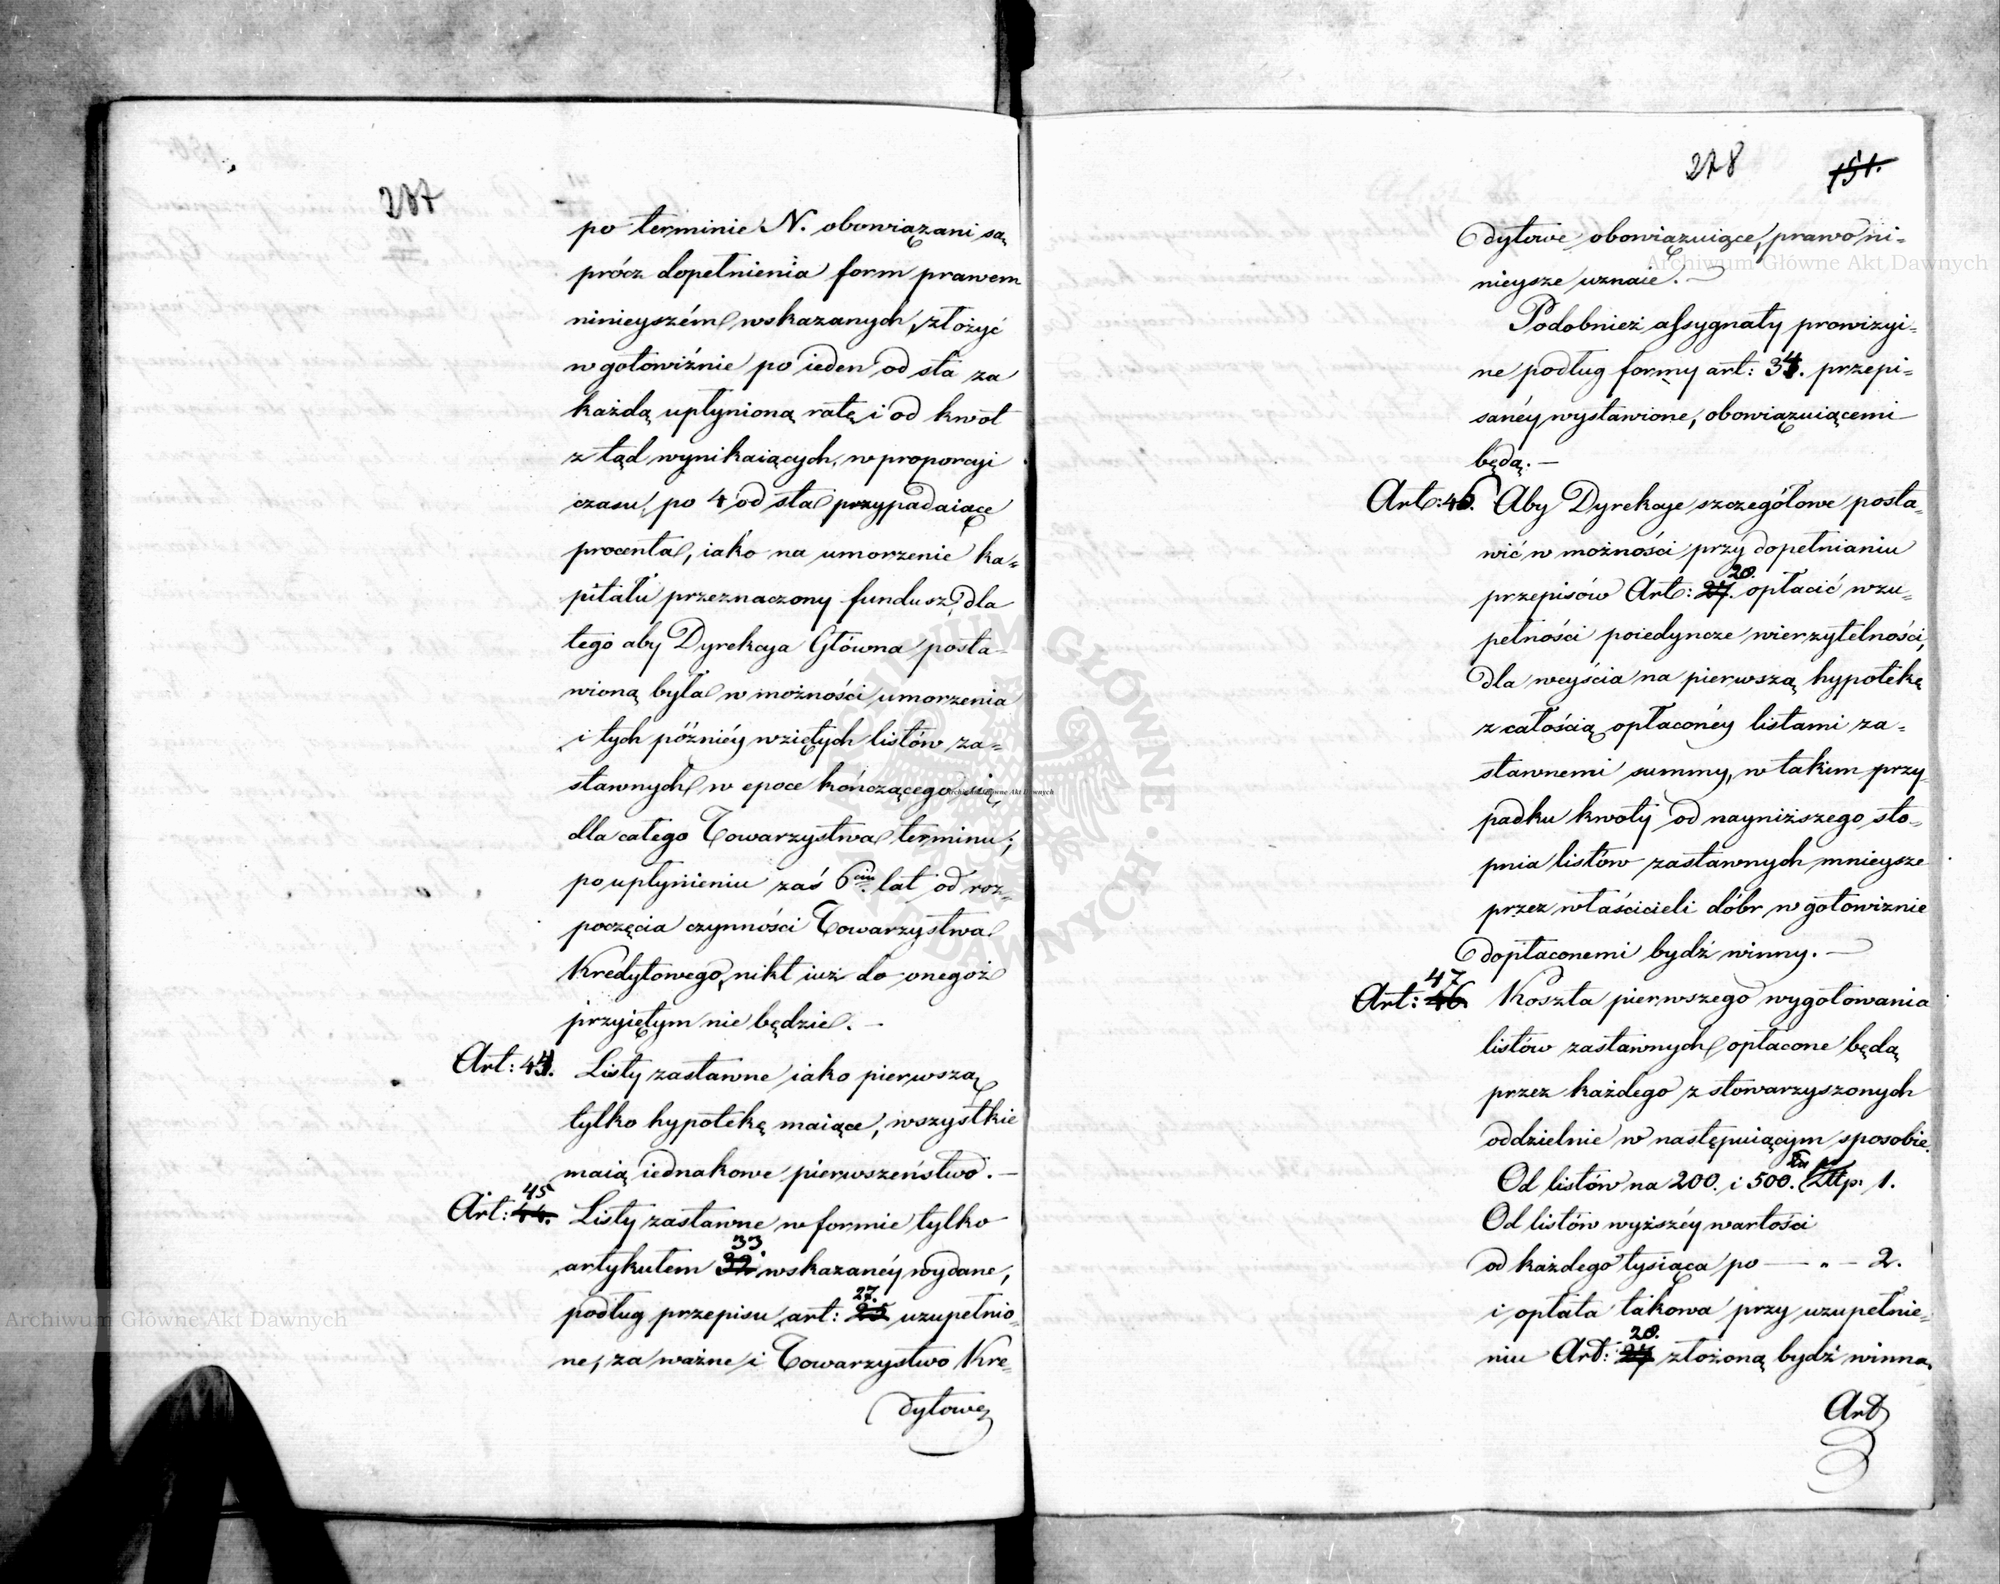 po terminie N. obowiązani są,
prócz dopełnienia form prawem
ninieyszém wskazanych, złożyć
w gotowiźnie po ieden od sta za
każdą upłynioną ratę, i od kwot
z tąd wynikaiących, w proporcyi
czasu, po 4 od sta przypadaiące
procenta, iako na umorzenie ka=
pitału przeznaczony fundusz, dla
tego aby Dyrekcya Główna posta=
wioną była w możności umorzenia
i tych późniéy wziętych listów za=
stawnych w epoce kończącego się,
dla całego Towarzystwa terminu;
po upłynieniu zaś 6ciu lat od roz=
poczęcia czynności Towarzystwa
Kredytowego, nikt iuż do onegoż
przyiętym nie będzie. —
Art: 44. Listy zastawne iako pierwszą
tylko hypotekę maiące, wszystkie
maią iednakowe pierwszeństwo. —
45
Art: 44. Listy zastawne w formie tylko
33.
artykułem 32 wskazanéy wydane,
27.
podług przepisu art: 25 uzupełnio=
ne, za ważne i Towarzystwo Kre=
dytowe
278 151.
dytowe obowiązuiące, prawo ni=
nieysze uznaie. —
Podobnież assygnaty prowizyi=
ne podług formy art: 34. przepi=
sanéy wystawione, obowiązuiącemi
będą. —
Art: 46. Aby Dyrekcye szczegółowe posta=
wić w możności przy dopełnianiu
28.
przepisów Art: 27. opłacić w zu=
pełności poiedyncze wierzytelności,
dla weyścia na pierwszą hypotekę
z całością opłaconéy listami za=
stawnemi summy, w takim przy=
padku kwoty od nayniższego sto=
pnia listów zastawnych mnieysze
przez właścicieli dóbr w gotowiznie
dopłaconemi bydź winny. —
47
Art: 46. Koszta pierwszego wygotowania
listów zastawnych opłacone będą
przez każdego z stowarzyszonych
oddzielnie w następuiącym sposobie.
Od listów na 200. i 500. Złtp. 1.
Od listów wyższéy wartości
od każdego tysiąca po — „ — 2.
i opłata takowa przy uzupełnie=
28.
niu Art: 27 złożoną bydź winna.
Art
Archiwum Główne Akt Dawnych
Archiwum Główne Akt Dawnych
Archiwum Główne Akt Dawnych
ARCHIWUM GŁÓWNE AKT DAWNYCH